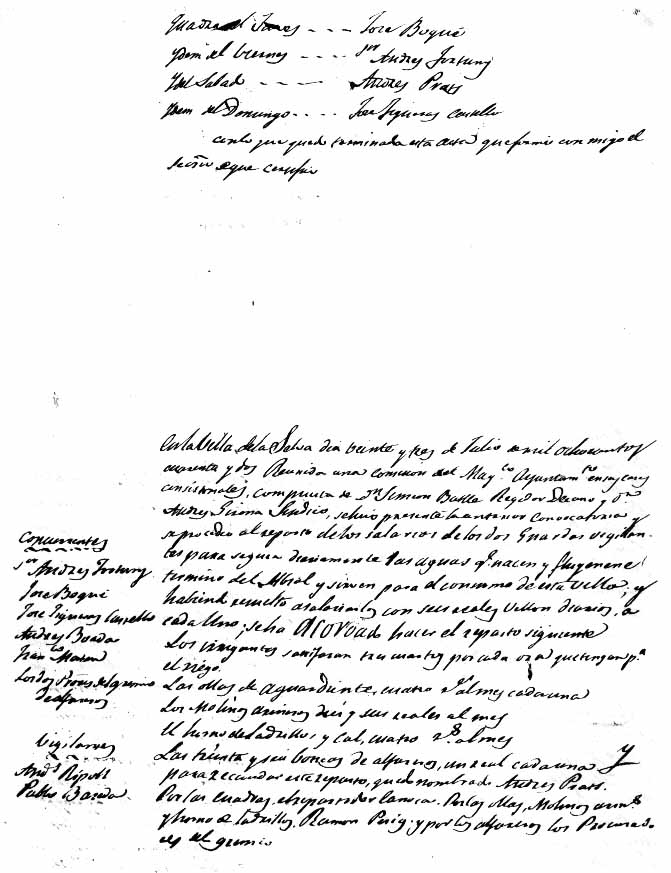 Quadra del Jueves - - - Jose Boqué
Ydem del Viernes - - - - Sor Andres Fortuny
Y del Sabado - - - - Andres Prats
Ydem del Domingo - - - - Jose Figueras
con lo que quedó terminada esta acta que firmó con migo el
Secretario de que certifico
En la Villa de la Selva dia veinte y tres de Julio de mil ochocientos
cuarenta y dos Reunida una comision del Mag.co Ayuntam.to en sus casas
consistoriales, compuesta de Dn Simeon Batlle Regidor Decano y Dn
Andres Girona Sindico, se hizo presente la anterior Convocatoria y
se procedió al reparto de los salarios de los dos Guardas vigilan-
tes para seguir diariamente las aguas q.e nacen y fluyen en el
termino del Albiol y sirven para el consumo de esta Villa, y
habiendo resuelto asalariarles con seis reales vellon diarios, a
cada uno; se ha aprovado hacer el reparto siguiente
Los satisfaran tres cuartos por cada ora que tengan p.a
el riego.
Las ollas de aguardiente, cuatro r.s al mes cada una
Los Molinos arineros diez y seis reales al mes
El horno de ladrillos y cal, cuatro r.s al mes
Las treinta y seis bocas de alfareros, un real cada una Y
para recaudar este reparto, quedó nombrado Andres Prats.
Por las cuadras, el Por las ollas, Molinos arin.s
y horno de ladrillos, Ramon Puig; y por los alfareros los Procurado
res del gremio
Concurrentes
Sor Andres Fortuny
Jose Boqué
Jose Figueras
Andres Boada
Fran.co
Los dos Prores del gremio
de alfareros
Vigilantes
And.s Ripoll
Pablo Barda